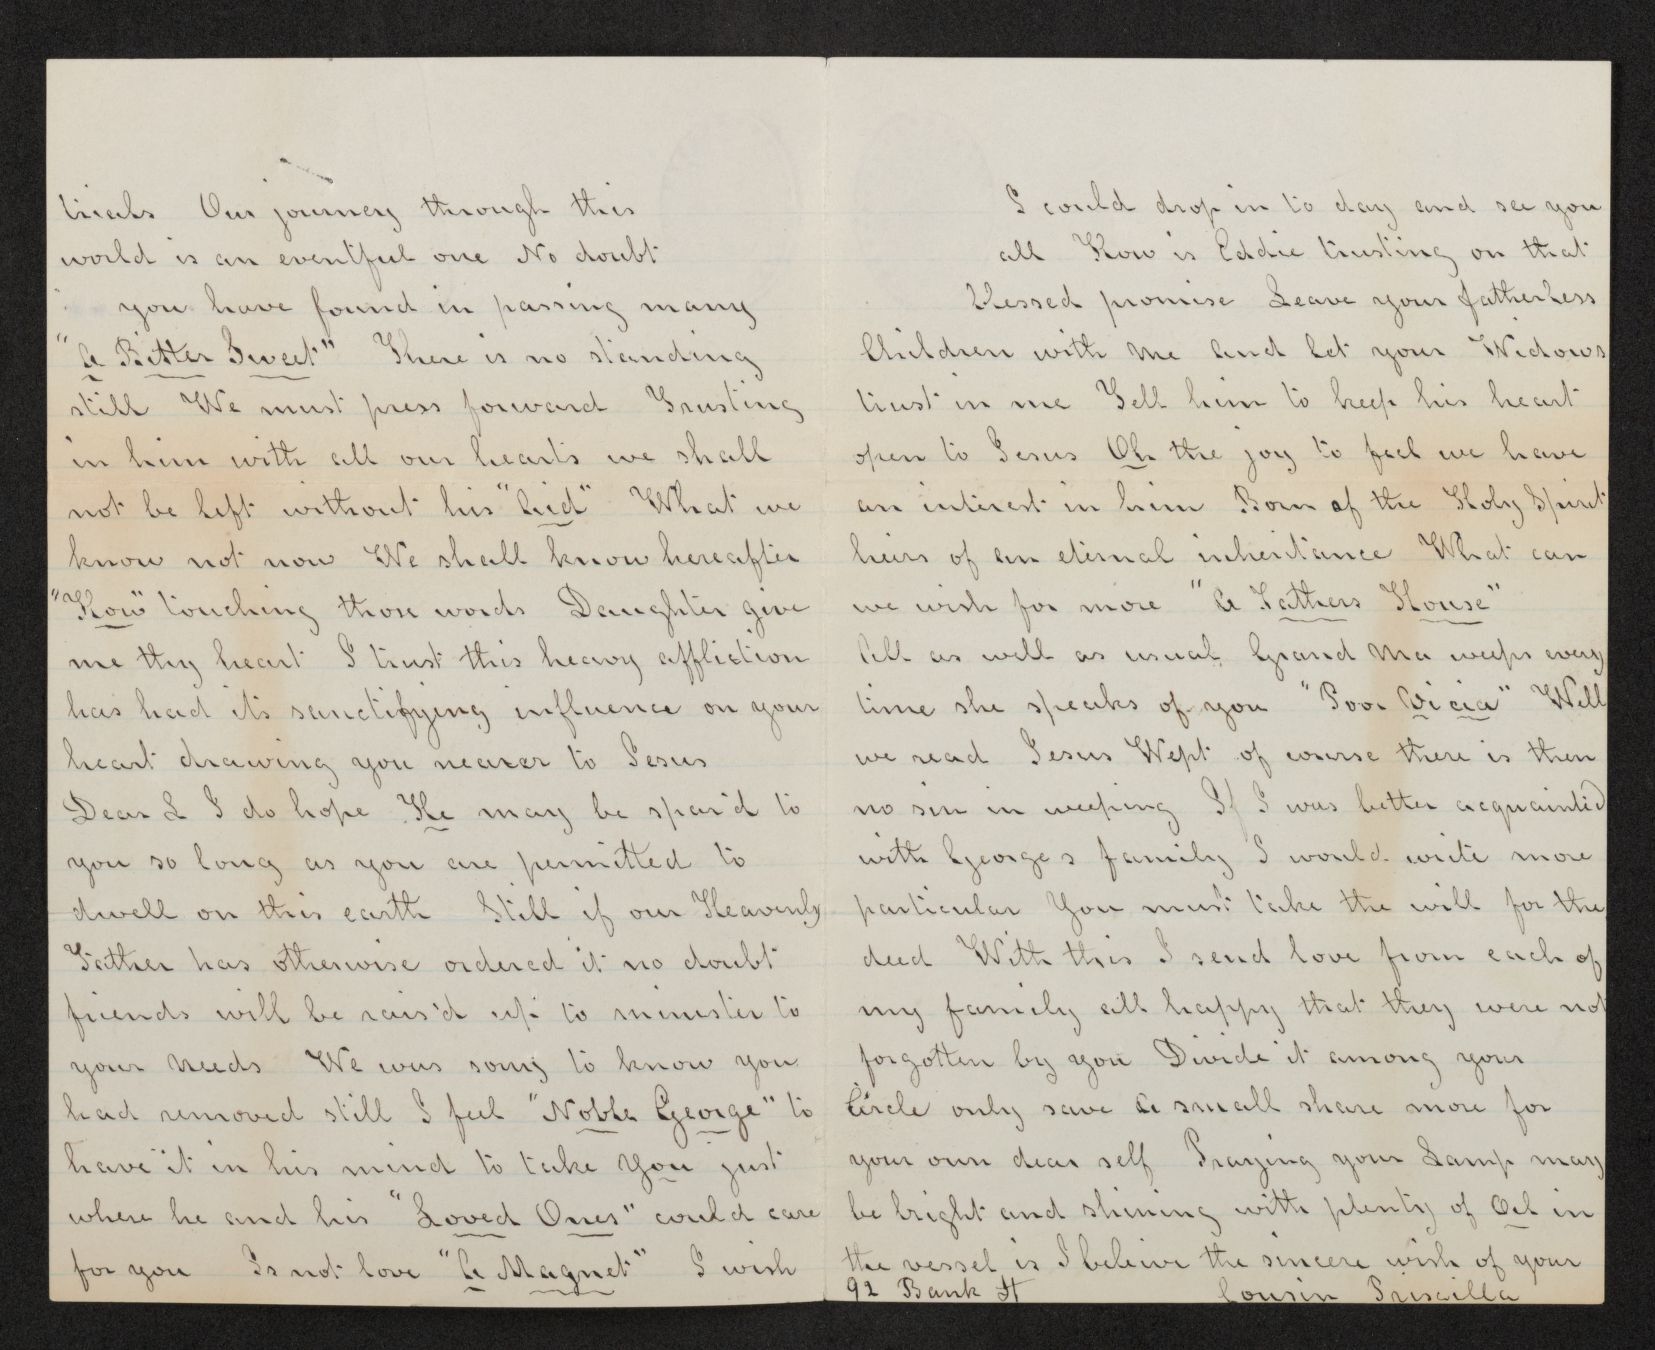 trials Our journey through this
world is an eventful one No doubt
you have found in passing many
"A Bitter Sweet" There is no standing
still We must press forward Trusting
in him with all our hearts we shall
not be left without his "Aid" What we
know not now We shall know hereafter
"How" touching those words Daughter give
me thy heart I trust this heavy affliction
has had it's sanctifying influence on your
heart drawing you nearer to Jesus
Dear L I do hope He may be spar'd to
you so long as you are permitted to
dwell on this earth Still if our Heavenly
Father has otherwise ordered it no doubt
friends will be rais'd up to minister to
your needs We was sorry to know you
had removed still I feel "Noble George" to
have it in his mind to take you just
where he and his "Loved Ones" could care
for you Is not love "A Magnet" I wish
I could drop in to day and see you
all How is Eddie trusting on that
blessed promise Leave your fatherless
Children with me and let your Widows
trust in me Tell him to keep his heart
open to Jesus Oh the joy to feel we have
an interest in him Born of the Holy Spirit
heirs of an eternal inheritance What can
we wish for more "A Fathers House"
All as well as usual Grand Ma weeps every
time she speaks of you "Poor" Well
we read Jesus Wept of course there is then
no sin in weeping If I was better acquainted
with George s family I would write more
particular You must take the will for the
deed With this I send love from each of
my family all happy that they were not
forgotten by you Divide it among your
Circle only save a small share more for
your own dear self Praying your Lamp may
be bright and shining with plenty of Oil in
the vessel is I beleive the sincere wish of your
92 Bank St Cousin Priscilla